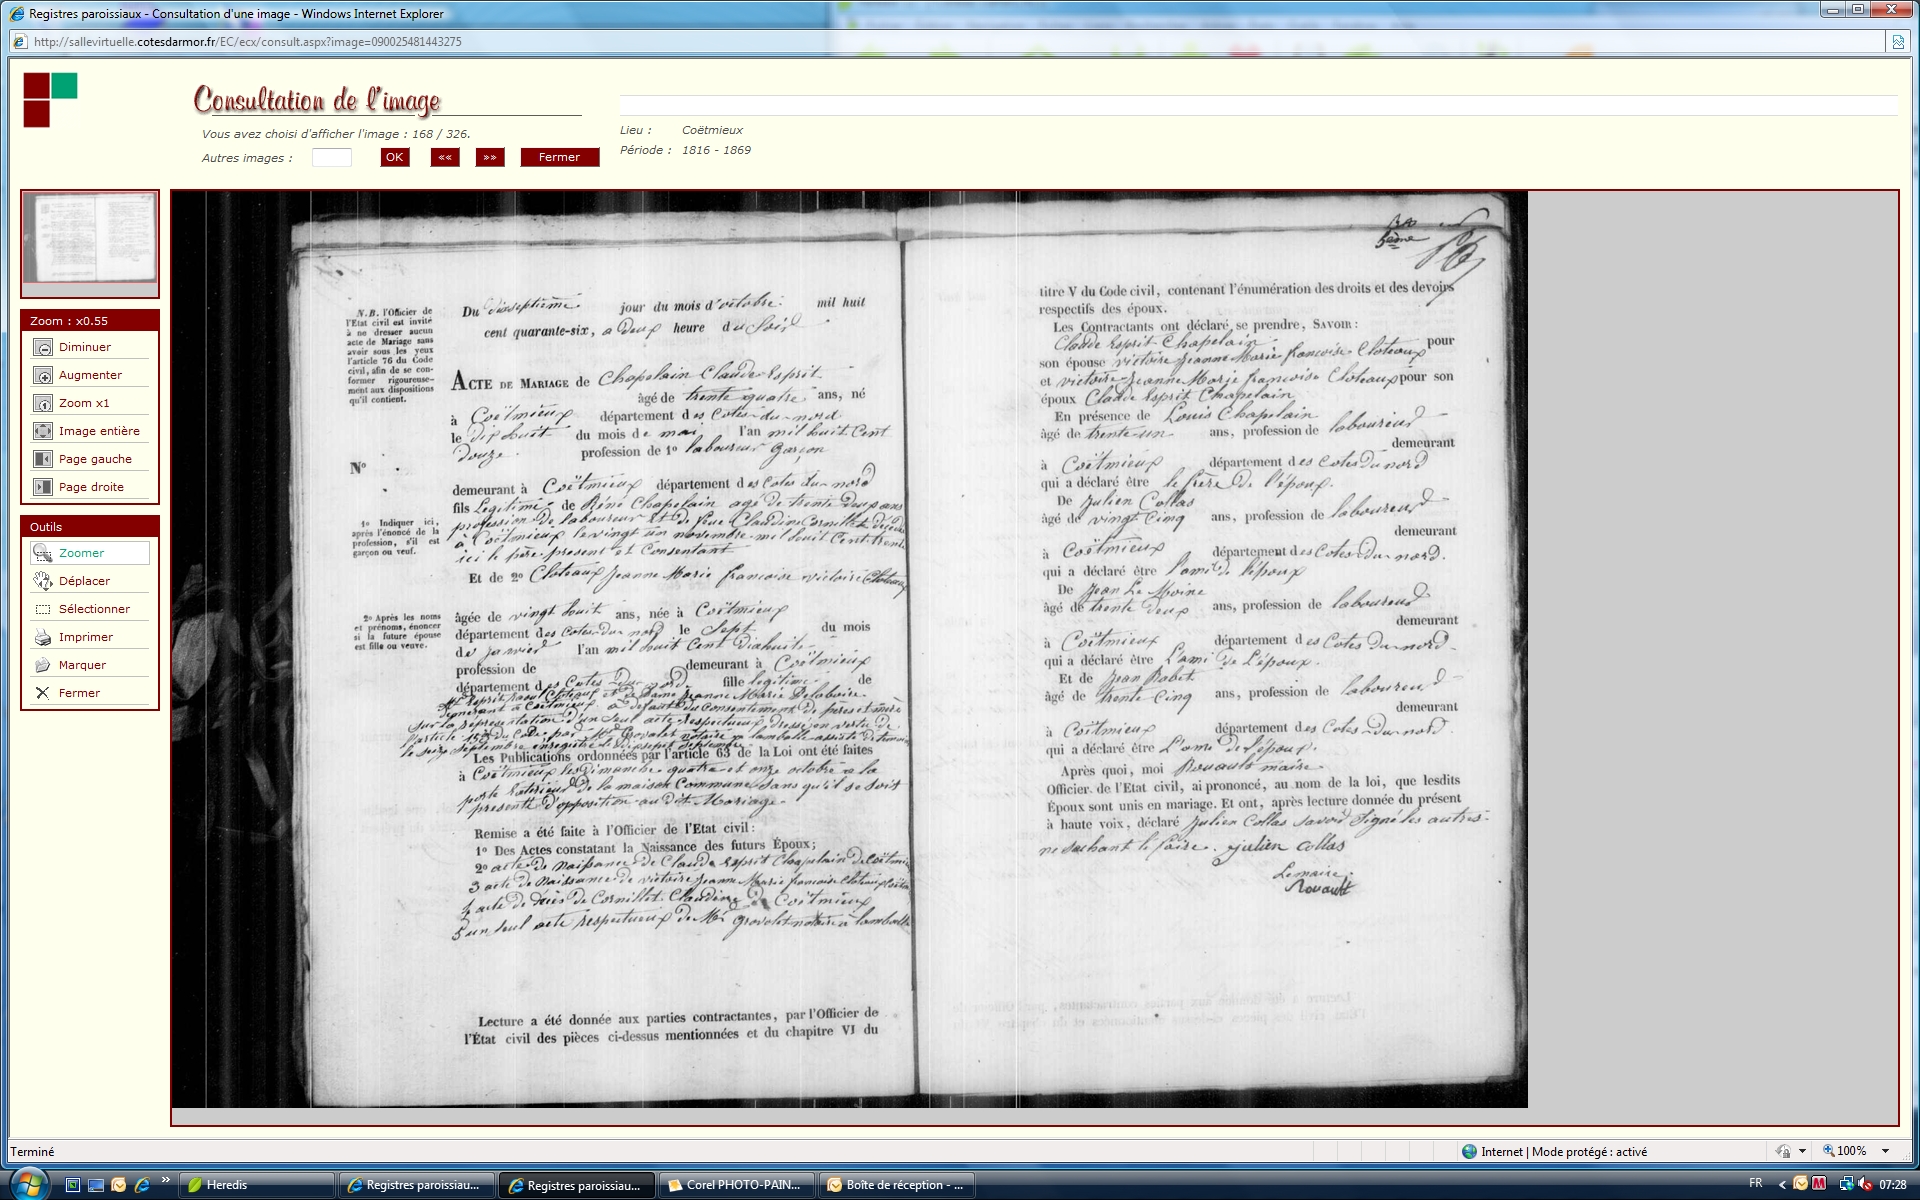 Registres paroissiaux - Consultation d'une image - Windows Internet Explorer
http://sallevirtuelle.cotesdarmor.fr/EC/ecx/consult.aspx?image=090025481443275
Consultation de l'image
Vous avez choisi d'afficher l'image : 168 / 326.
Autres images :
OK
««
»»
Fermer
Lieu : Coëtmieux
Période : 1816 - 1869
Zoom : x0.55
Diminuer
Augmenter
Zoom x1
Image entière
Page gauche
Page droite
Outils
Zoomer
Déplacer
Sélectionner
Imprimer
Marquer
Fermer
N.B. l'Officier de
l'Etat civil est invité
à ne dresser aucun
acte de Mariage sans
avoir sous les yeux
l'article 76 du Code
civil, afin de se con-
former rigoureuse-
ment aux dispositions
qu'il contient.
Nº
1º Indiquer ici,
après l'énoncé de la
profession, s'il est
garçon ou veuf.
2º Après les noms
et prénoms, énoncer
si la future épouse
est fille ou veuve.
Du dixseptième jour du mois d'octobre mil huit
cent quarante-six, a deux heure du Soir
ACTE DE MARIAGE de Chapelain Claude Esprit
âgé de trente quatre ans, né
à Coëtmieux département des Cotes-du-nord
le dix huit du mois de mai l'an mil huit Cent
douze profession de 1º laboureur Garçon
demeurant à Coëtmieux département des Cotes du-nord
fils Légitime de René Chapelain agé de
profession de laboureur et de feue Claudine Cornillet
à Coëtmieux le vingt un novembre mil huit Cent
ici le père present et Consentant
Et de 2º Cloteaux Jeanne Marie françoise victoire
âgée de vingt huit ans, née à Coëtmieux
département des Cotes-du-nord le Sept du mois
de janvier l'an mil huit Cent dixhuit
profession de demeurant à Coëtmieux
département des Cotes-du-nord fille legitime de
Esprit et de Dame Jeanne Marie
demeurant à Coëtmieux a defaut du Consentement de pères et mère
sur la représentation d'un Seul acte respectueux dressé en vertu de
l'article du Code par Grovalet notaire a lamballe
le Seize Septembre enregistré le dixsept Septembre
Les Publications ordonnées par l'article 63 de la Loi ont été faites
à Coëtmieux les Dimanche quatre et onze octobre a la
porte de la maison Commune Sans qu'il se soit
presenté d'opposition au dit Mariage
Remise a été faite à l'Officier de l'Etat civil :
1º Des Actes constatant la Naissance des futurs Époux ;
2º acte de Naissance de Claude Esprit Chapelain de
3 acte de Naissance de victoire Jeanne Marie françoise
4 acte de décès de Cornillet Claudine de Coëtmieux
5 un Seul acte respectueux de Mr Grovalet notaire à lamballe
Lecture a été donnée aux parties contractantes, par l'Officier de
l'État civil des pièces ci-dessus mentionnées et du chapitre VI du
titre V du Code civil, contenant l'énumération des droits et des devoirs
respectifs des époux.
Les Contractants ont déclaré se prendre, SAVOIR :
Claude Esprit Chapelain pour
son épouse victoire Jeanne Marie françoise Cloteaux
et victoire Jeanne Marie françoise Cloteaux pour son
époux Claude Esprit Chapelain
En présence de Louis Chapelain
âgé de trente un ans, profession de laboureur
demeurant
à Coëtmieux département des Cotes du nord
qui a déclaré être le frère de l'époux.
De Julien Collas
âgé de vingt Cinq ans, profession de laboureur
demeurant
à Coëtmieux département des Cotes-du-nord.
qui a déclaré être l'ami de l'époux
De Jean Le Moine
âgé de trente deux ans, profession de laboureur
demeurant
à Coëtmieux département des Cotes du-nord.
qui a déclaré être L'ami de L'époux.
Et de Jean Rabet
âgé de trente Cinq ans, profession de laboureur
demeurant
à Coëtmieux département des Cotes-du-nord.
qui a déclaré être L'ami de l'époux.
Après quoi, moi Rouault maire
Officier de l'Etat civil, ai prononcé, au nom de la loi, que lesdits
Époux sont unis en mariage. Et ont, après lecture donnée du présent
à haute voix, déclaré Julien Collas Savoir Signé les autres
ne Sachant le faire. Julien Collas
Lemaire.
Rouault
Terminé
Internet | Mode protégé : activé
100%
Heredis
Registres paroissiau...
Registres paroissiau...
Corel PHOTO-PAIN...
Boîte de réception - ...
FR
07:28